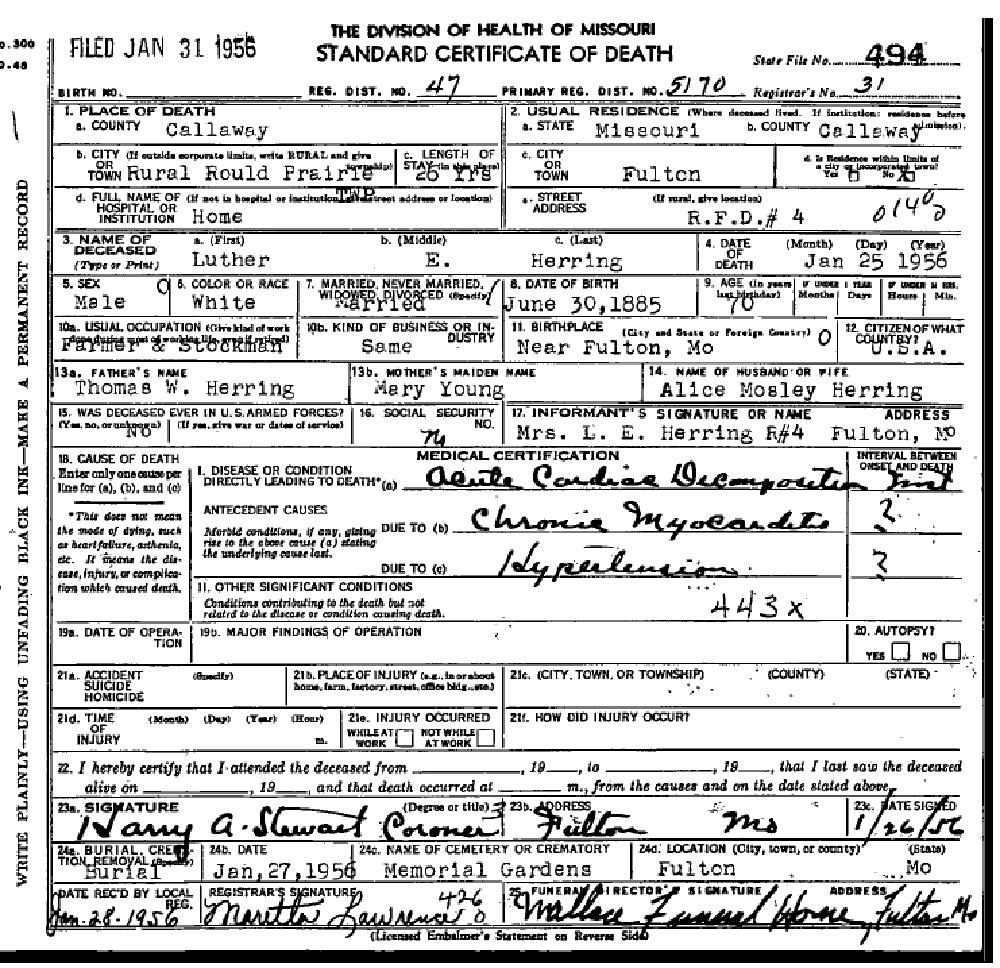 THE DIVISION OF HEALTH OF MISSOURI
FILED JAN 31 1956 STANDARD CERTIFICATE OF DEATH State File No. 494
BIRTH NO. REG. DIST. NO. 47 PRIMARY REG. DIST. NO. 5170 Registrar's No. 31
1. PLACE OF DEATH
a. COUNTY Callaway
2. USUAL RESIDENCE (Where deceased lived. If institution: residence before admission).
a. STATE Missouri b. COUNTY Callaway
b. CITY (If outside corporate limits, write RURAL and give township)
OR TOWN Rural Rould Prairie TWP
c. LENGTH OF STAY (in this place) 20 Yrs
c. CITY OR TOWN Fulton
d. Is Residence within limits of a city or incorporated town? Yes No X
d. FULL NAME OF HOSPITAL OR INSTITUTION (If not in hospital or institution, give street address or location)
Home
e. STREET ADDRESS (If rural, give location)
R.F.D.# 4 0140
3. NAME OF DECEASED (Type or Print) a. (First) b. (Middle) c. (Last)
Luther E. Herring
4. DATE OF DEATH (Month) (Day) (Year)
Jan 25 1956
5. SEX Male 0
6. COLOR OR RACE White
7. MARRIED, NEVER MARRIED, WIDOWED, DIVORCED (Specify) Married 1
8. DATE OF BIRTH June 30,1885
9. AGE (In years last birthday) 70 IF UNDER 1 YEAR Months Days IF UNDER 24 HRS. Hours Min.
10a. USUAL OCCUPATION (Give kind of work done during most of working life, even if retired)
Farmer & Stockman
10b. KIND OF BUSINESS OR INDUSTRY
Same
11. BIRTHPLACE (City and State or Foreign Country) 0
Near Fulton, Mo
12. CITIZEN OF WHAT COUNTRY?
U.S.A.
13a. FATHER'S NAME
Thomas W. Herring
13b. MOTHER'S MAIDEN NAME
Mary Young
14. NAME OF HUSBAND OR WIFE
Alice Mosley Herring
15. WAS DECEASED EVER IN U.S. ARMED FORCES?
(Yes, no, or unknown) (If yes, give war or dates of service)
No
16. SOCIAL SECURITY NO.
no
17. INFORMANT'S SIGNATURE OR NAME ADDRESS
Mrs. L. E. Herring R#4 Fulton, Mo
18. CAUSE OF DEATH
Enter only one cause per line for (a), (b), and (c)
*This does not mean the mode of dying, such as heart failure, asthenia, etc. It means the disease, injury, or complication which caused death.
MEDICAL CERTIFICATION
INTERVAL BETWEEN ONSET AND DEATH
I. DISEASE OR CONDITION DIRECTLY LEADING TO DEATH* (a) Acute Cardiac Decomposition Inst
ANTECEDENT CAUSES
Morbid conditions, if any, giving rise to the above cause (a) stating the underlying cause last.
DUE TO (b) Chronic Myocarditis ?
DUE TO (c) Hypertension ?
II. OTHER SIGNIFICANT CONDITIONS
Conditions contributing to the death but not related to the disease or condition causing death.
443x
19a. DATE OF OPERATION
19b. MAJOR FINDINGS OF OPERATION
20. AUTOPSY?
YES NO
21a. ACCIDENT SUICIDE HOMICIDE (Specify)
21b. PLACE OF INJURY (e.g., in or about home, farm, factory, street, office bldg., etc.)
21c. (CITY, TOWN, OR TOWNSHIP) (COUNTY) (STATE)
21d. TIME OF INJURY (Month) (Day) (Year) (Hour) m.
21e. INJURY OCCURRED
WHILE AT WORK NOT WHILE AT WORK
21f. HOW DID INJURY OCCUR?
22. I hereby certify that I attended the deceased from , 19 , to , 19 , that I last saw the deceased
alive on , 19 , and that death occurred at m., from the causes and on the date stated above.
23a. SIGNATURE (Degree or title)
Harry A. Stewart Coroner 3
23b. ADDRESS
Fulton Mo
23c. DATE SIGNED
1/26/56
24a. BURIAL, CREMATION, REMOVAL (Specify)
Burial
24b. DATE
Jan,27,1956
24c. NAME OF CEMETERY OR CREMATORY
Memorial Gardens
24d. LOCATION (City, town, or county) (State)
Fulton Mo
DATE REC'D BY LOCAL REG.
Jan-28-1956
REGISTRAR'S SIGNATURE 426
Maretta Lawrence 0
25. FUNERAL DIRECTOR'S SIGNATURE ADDRESS
Wallace Funeral Home, Fulton Mo
(Licensed Embalmer's Statement on Reverse Side)
WRITE PLAINLY—USING UNFADING BLACK INK—MAKE A PERMANENT RECORD